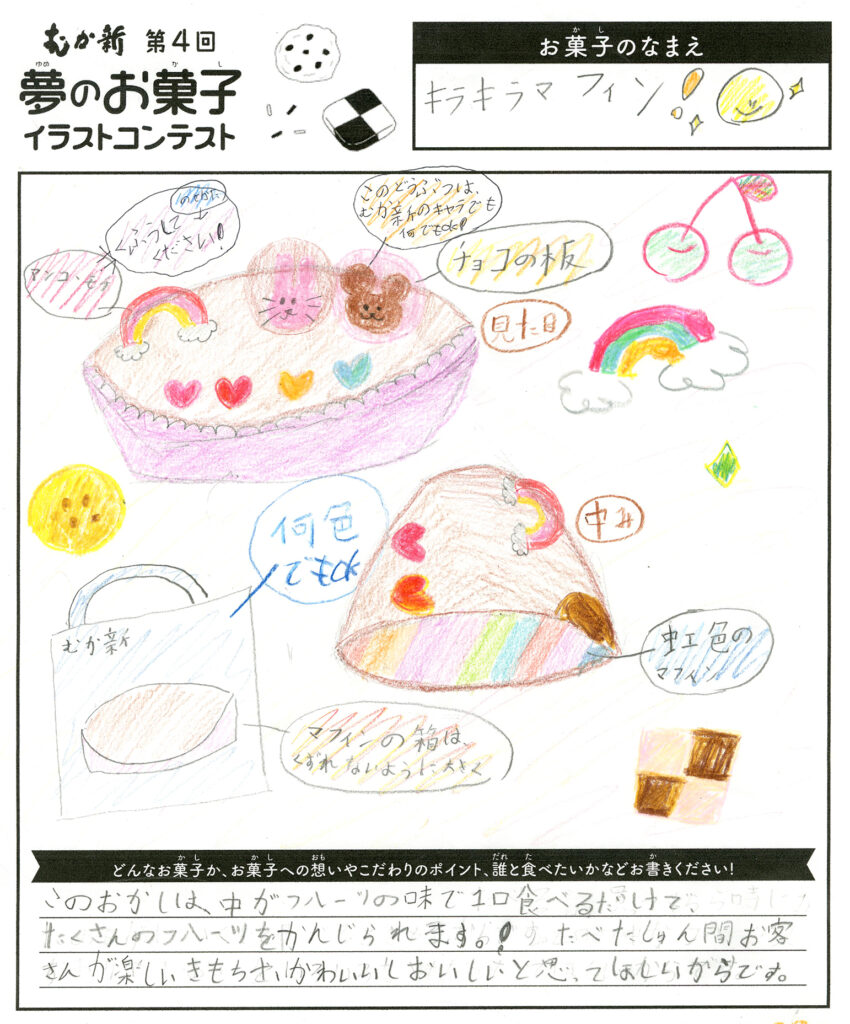 むか新 第4回
夢のお菓子
イラストコンテスト
お菓子のなまえ
キラキラマフィン!
のせかた
くふうして
ください!
このどうぶつは、
むか新のキャラでも
何でもok!
チョコの板
見た目
中み
何色
でもok
むか新
虹色の
マフィン
マフィンの箱は
くずれないように大きく
どんなお菓子か、お菓子への想いやこだわりのポイント、誰と食べたいかなどお書きください!
このおかしは、中がフルーツの味で1口食べるだけで、
たくさんのフルーツをかんじられます。! たべたしゅん間お客
さんが楽しいきもちさ、かわいいしおいしいと思ってほしいからです。